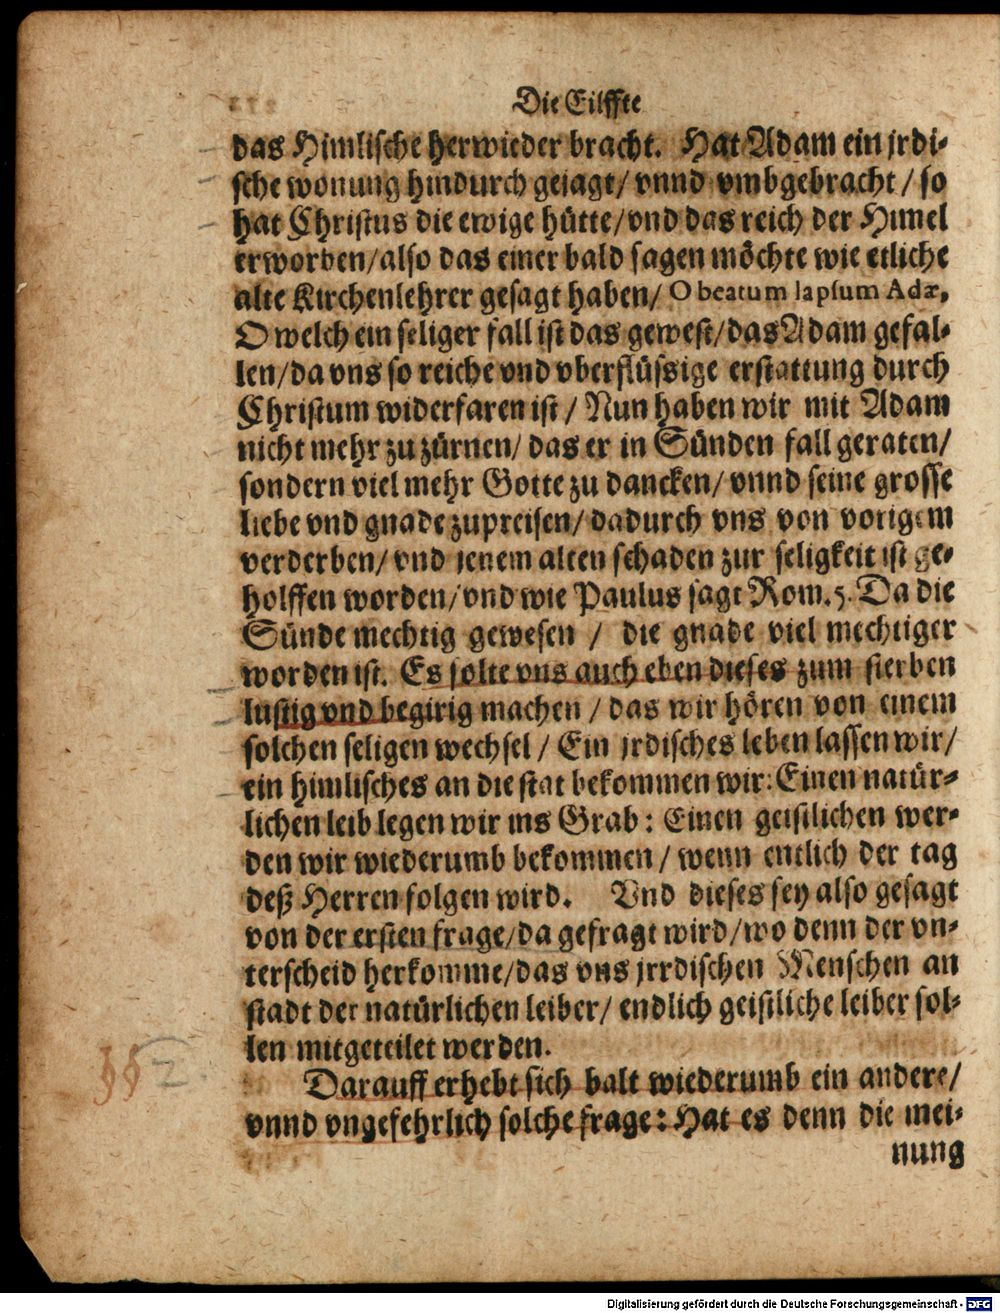 Die Eilffte
das Himlische herwieder bracht. Hat Adam ein jrdi-
sche wonung hindurch gejagt/ vnnd vmbgebracht / so
hat Christus die ewige hütte/vnd das reich der Himel
erworben/also das einer bald sagen möchte wie etliche
alte Kirchenlehrer gesagt haben/ O beatum lapsum Adæ,
O welch ein seliger fall ist das gewest/das Adam gefal-
len/da vns so reiche vnd vberflüssige erstattung durch
Christum widerfaren ist / Nun haben wir mit Adam
nicht mehr zu zürnen/ das er in Sünden fall geraten/
sondern viel mehr Gotte zu dancken/ vnnd seine grosse
liebe vnd gnade zupreisen/ dadurch vns von vorigem
verderben/ vnd jenem alten schaden zur seligkeit ist ge-
holffen worden/vnd wie Paulus sagt Rom.5. Da die
Sünde mechtig gewesen / die gnade viel mechtiger
worden ist. Es solte vns auch eben dieses zum sterben
lustig vnd begirig machen / das wir hören von einem
solchen seligen wechsel / Ein jrdisches leben lassen wir/
ein himlisches an die stat bekommen wir: Einen natür-
lichen leib legen wir ins Grab: Einen geistlichen wer-
den wir wiederumb bekommen / wenn entlich der tag
deß Herren folgen wird. Vnd dieses sey also gesagt
von der ersten frage/da gefragt wird/wo denn der vn-
terscheid herkomme/das vns jrrdischen Menschen an
stadt der natürlichen leiber/ endlich geistliche leiber sol-
len mitgeteilet werden.
§§ 2.
Darauff erhebt sich balt wiederumb ein andere/
vnnd vngefehrlich solche frage: Hat es denn die mei-
nung
Digitalisierung gefördert durch die Deutsche Forschungsgemeinschaft - DFG